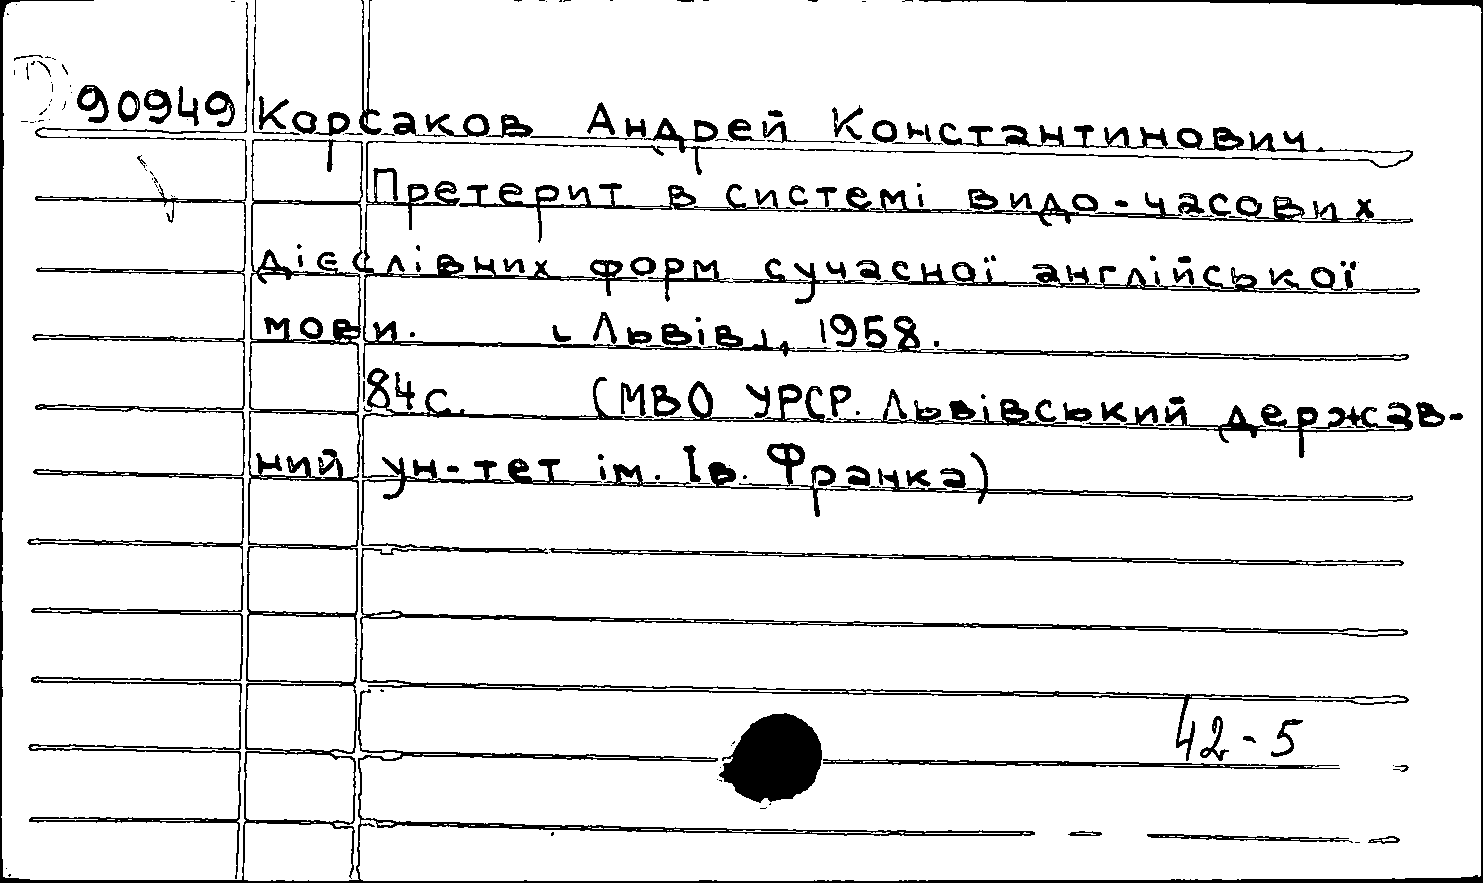 90949 Корсаков Андрей Константинович.
Претерит в системі видо-часових
дієслівних форм сучасної англійської
мови. [Львів], 1958.
84 с. (МВО УРСР. Львівський держав-
ний ун-тет ім. Ів. Франка)
42-5